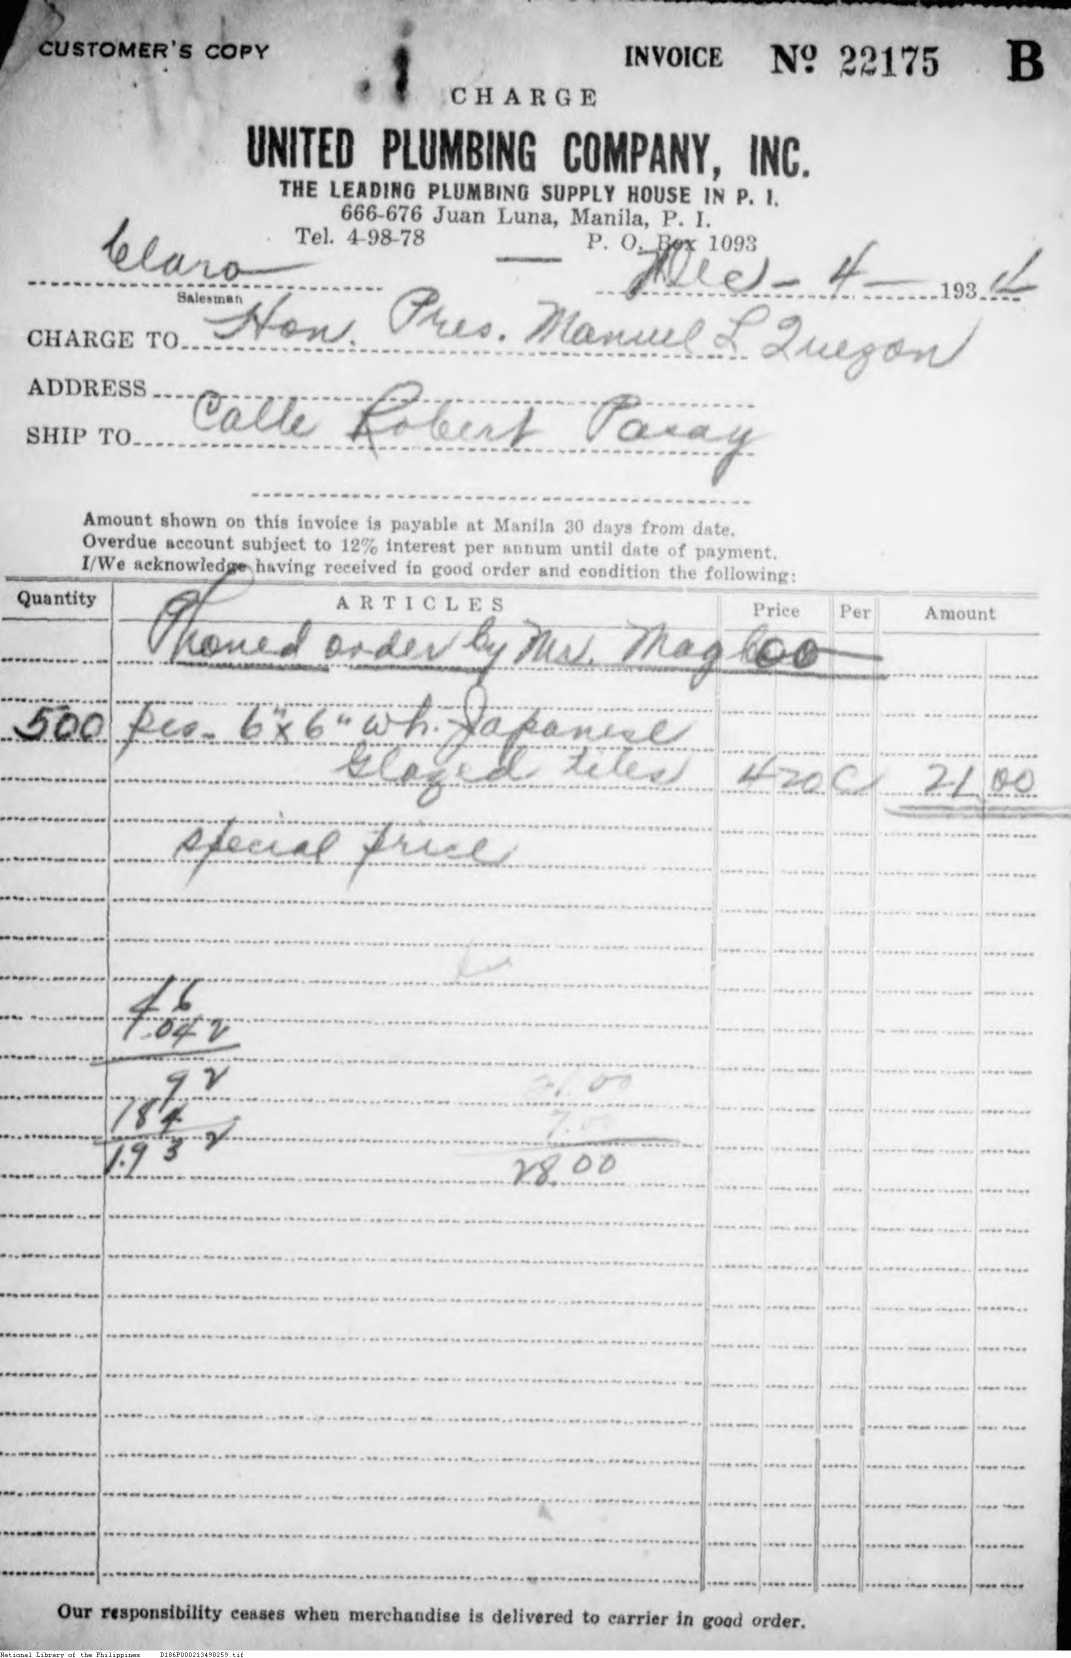 CUSTOMER'S COPY
INVOICE Nº 22175 B
CHARGE
UNITED PLUMBING COMPANY, INC.
THE LEADING PLUMBING SUPPLY HOUSE IN P. I.
666-676 Juan Luna, Manila, P. I.
Tel. 4-98-78 P. O. Box 1093
Claro Dec - 4 - 1934
Salesman
CHARGE TO Hon. Pres. Manuel L Quezon
ADDRESS
SHIP TO Calle Robert Pasay
Amount shown on this invoice is payable at Manila 30 days from date.
Overdue account subject to 12% interest per annum until date of payment.
I/We acknowledge having received in good order and condition the following:
Quantity ARTICLES Price Per Amount
Phoned order by Mr.
500 pcs. 6"x6" wh. Japanese
Glazed tiles 4 20 C 21 00
special price
46
.042
92
184
1.932
21.00
7.00
28.00
Our responsibility ceases when merchandise is delivered to carrier in good order.
National Library of the Philippines D186P000213498259.tif